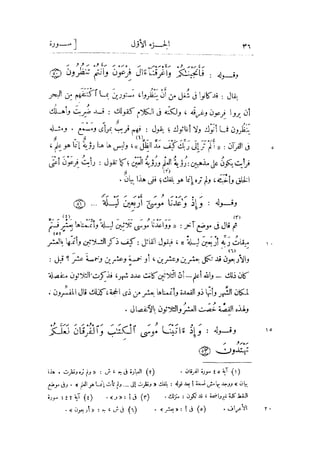 ٣٦ الجزء الأول [ سورة
وقوله : فَأَنجَيْنَٰكُمْ وَأَغْرَقْنَآ ءَالَ فِرْعَوْنَ وَأَنتُمْ تَنظُرُونَ ﴿٥٠﴾
يقال : قد كانوا فى شغل من أن ينظروا، مستورين بما اكتنفهم من البحر
أن يروا فرعون وغرقه ، ولكنه فى الكلام كقولك : قد ضُرِبت وأهلك
ينظرون فما أتوك ولا أغاثوك ؛ يقول : فهم قريب بمرأى ومسمع . ومثله
٥ فى القرآن : « أَلَمْ تَرَ إِلَى رَبِّكَ كَيْفَ مَدَّ الظِّلَّ » ، وليس ها هنا رؤية إنما هو علم ،
فرأيت يكون على مذهبين : رؤية العلم ورؤية العين ؛ كما تقول : رأيت فرعون أعتى
الخلق وأخبثه ، ولم تره إنما هو بلغك ؛ ففى هذا بيان .
وقوله : وَإِذْ وَٰعَدْنَا مُوسَىٰٓ أَرْبَعِينَ لَيْلَةً ... ﴿٥١﴾
ثم قال فى موضع آخر : « وواعدنا موسى ثلاثين ليلة وأتممناها بعشر فتم
١٠ ميقات ربه أربعين ليلة » ، فيقول القائل : كيف ذكر الثلاثين وأتمها بالعشر
والأربعون قد تكمل بعشرين وعشرين ، أو خمسة وعشرين وخمسة عشر ؟ قيل :
كان ذلك — والله أعلم — أن الثلاثين كانت عدد شهر ، فذكرت الثلاثون منفصلة
لمكان الشهر وأنها ذو القعدة وأتممناها بعشر من ذى الحجة ، كذلك قال المفسرون .
ولهذه القصة خصت العشر والثلاثون بالانفصال .
١٥ وقوله : وَإِذْ ءَاتَيْنَا مُوسَى ٱلْكِتَٰبَ وَٱلْفُرْقَانَ لَعَلَّكُمْ
تَهْتَدُونَ ﴿٥٣﴾
(١) آية ٤٥ سورة الفرقان . (٢) العبارة فى ج ، ش : « ولم تره ونظرت . هذا
بيان » ووجد بهامش نسخة أ بعد قوله : بلغك « ونظرت إلى ... ولم تأت إنما هو العلم » . وفى موضع
النقط كلمة غير واضحة ، قد تكون : منزلك . (٣) فى أ : « و » . (٤) آية ١٤٢ سورة
٢٠ الأعراف . (٥) فى أ : « بعشر » . (٦) فى ش ، ج : « أربعون » .